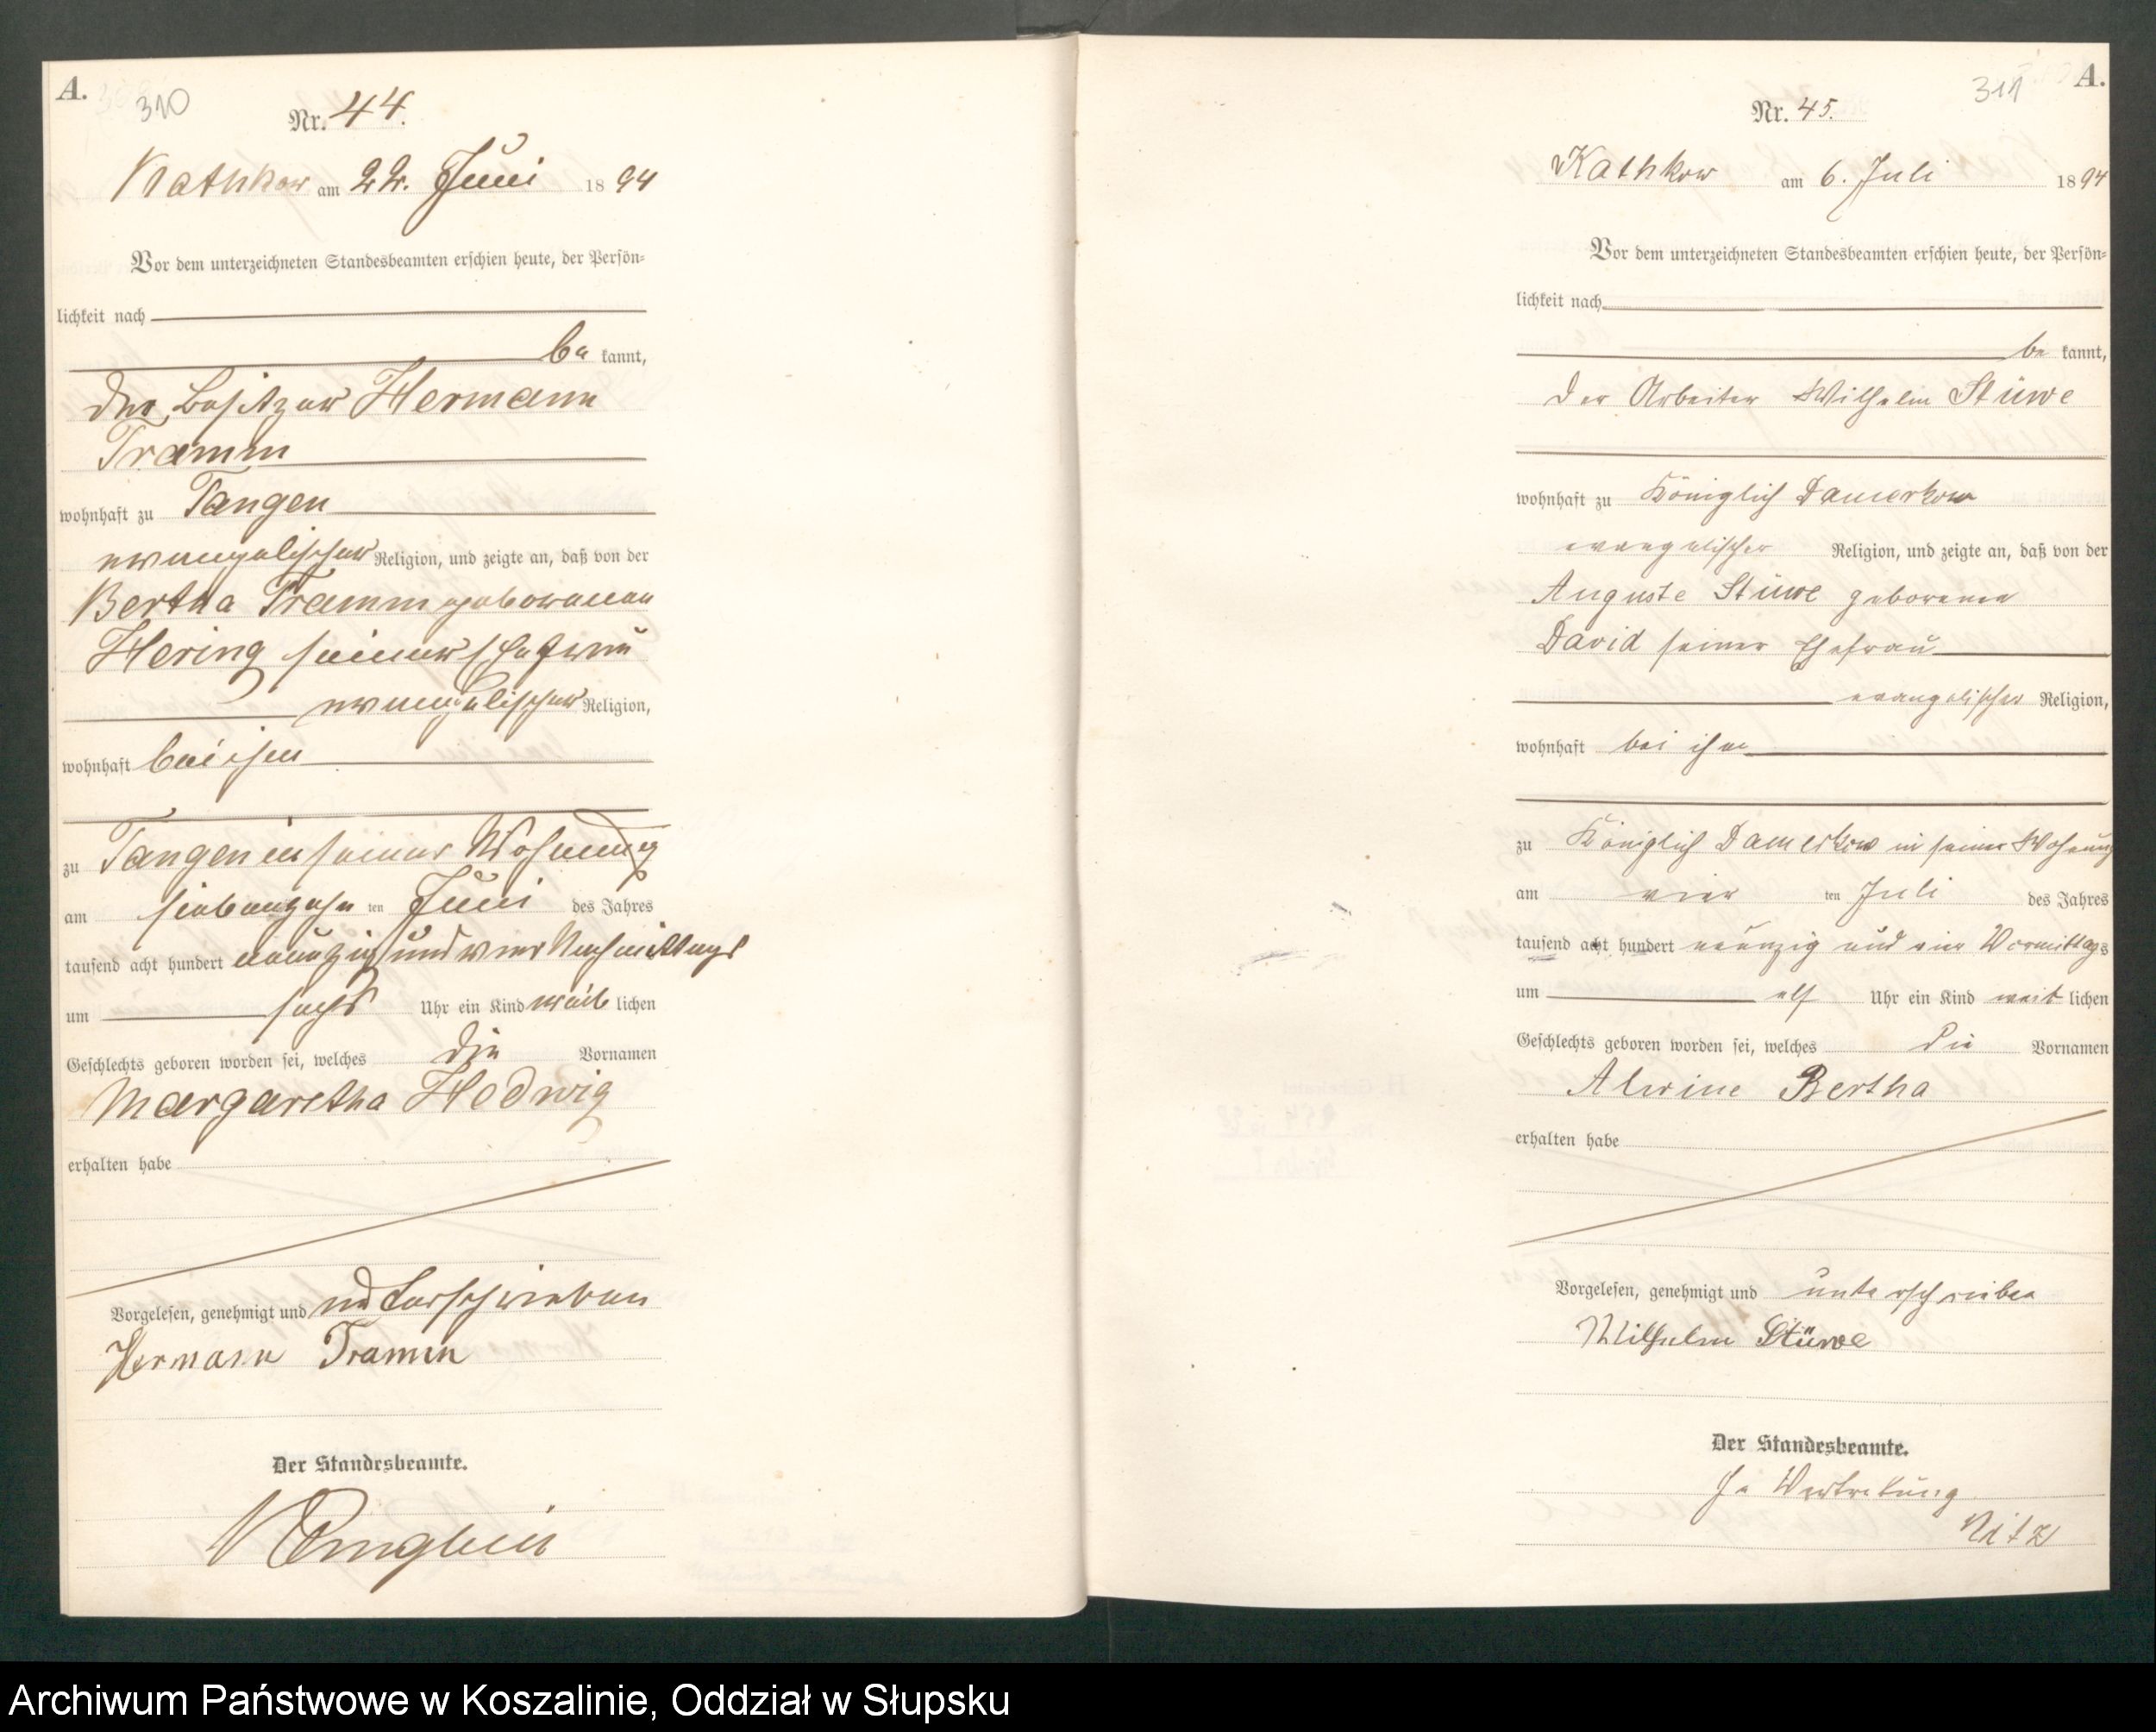 A.
310
Nr. 44.
Kathkow am 22. Juni 1894
Vor dem unterzeichneten Standesbeamten erschien heute, der Persön-
lichkeit nach
be kannt,
der Besitzer Hermann
Tramm
wohnhaft zu Tangen
evangelischer Religion, und zeigte an, daß von der
Bertha Tramm geborenen
Hering seiner Ehefrau
evangelischer Religion,
wohnhaft bei ihm
zu Tangen in seiner Wohnung
am siebenzehn ten Juni des Jahres
tausend acht hundert neunzig und vier Nachmittags
um sechs Uhr ein Kind weib lichen
Geschlechts geboren worden sei, welches die Vornamen
Margaretha Hedwig
erhalten habe
Vorgelesen, genehmigt und unterschrieben
Hermann Tramm
Der Standesbeamte.
311
A.
Nr. 45.
Kathkow am 6. Juli 1894
Vor dem unterzeichneten Standesbeamten erschien heute, der Persön-
lichkeit nach
be kannt,
der Arbeiter Wilhelm Stüwe
wohnhaft zu Königlich Damerkow
evangelischer Religion, und zeigte an, daß von der
Auguste Stüwe geborene
David seiner Ehefrau
evangelischer Religion,
wohnhaft bei ihm
zu Königlich Damerkow in seiner Wohnung
am vier ten Juli des Jahres
tausend acht hundert neunzig und vier Vormittags
um elf Uhr ein Kind weib lichen
Geschlechts geboren worden sei, welches die Vornamen
Alwine Bertha
erhalten habe
Vorgelesen, genehmigt und unterschrieben
Wilhelm Stüwe
Der Standesbeamte.
In Vertretung
Nitz
Archiwum Państwowe w Koszalinie, Oddział w Słupsku